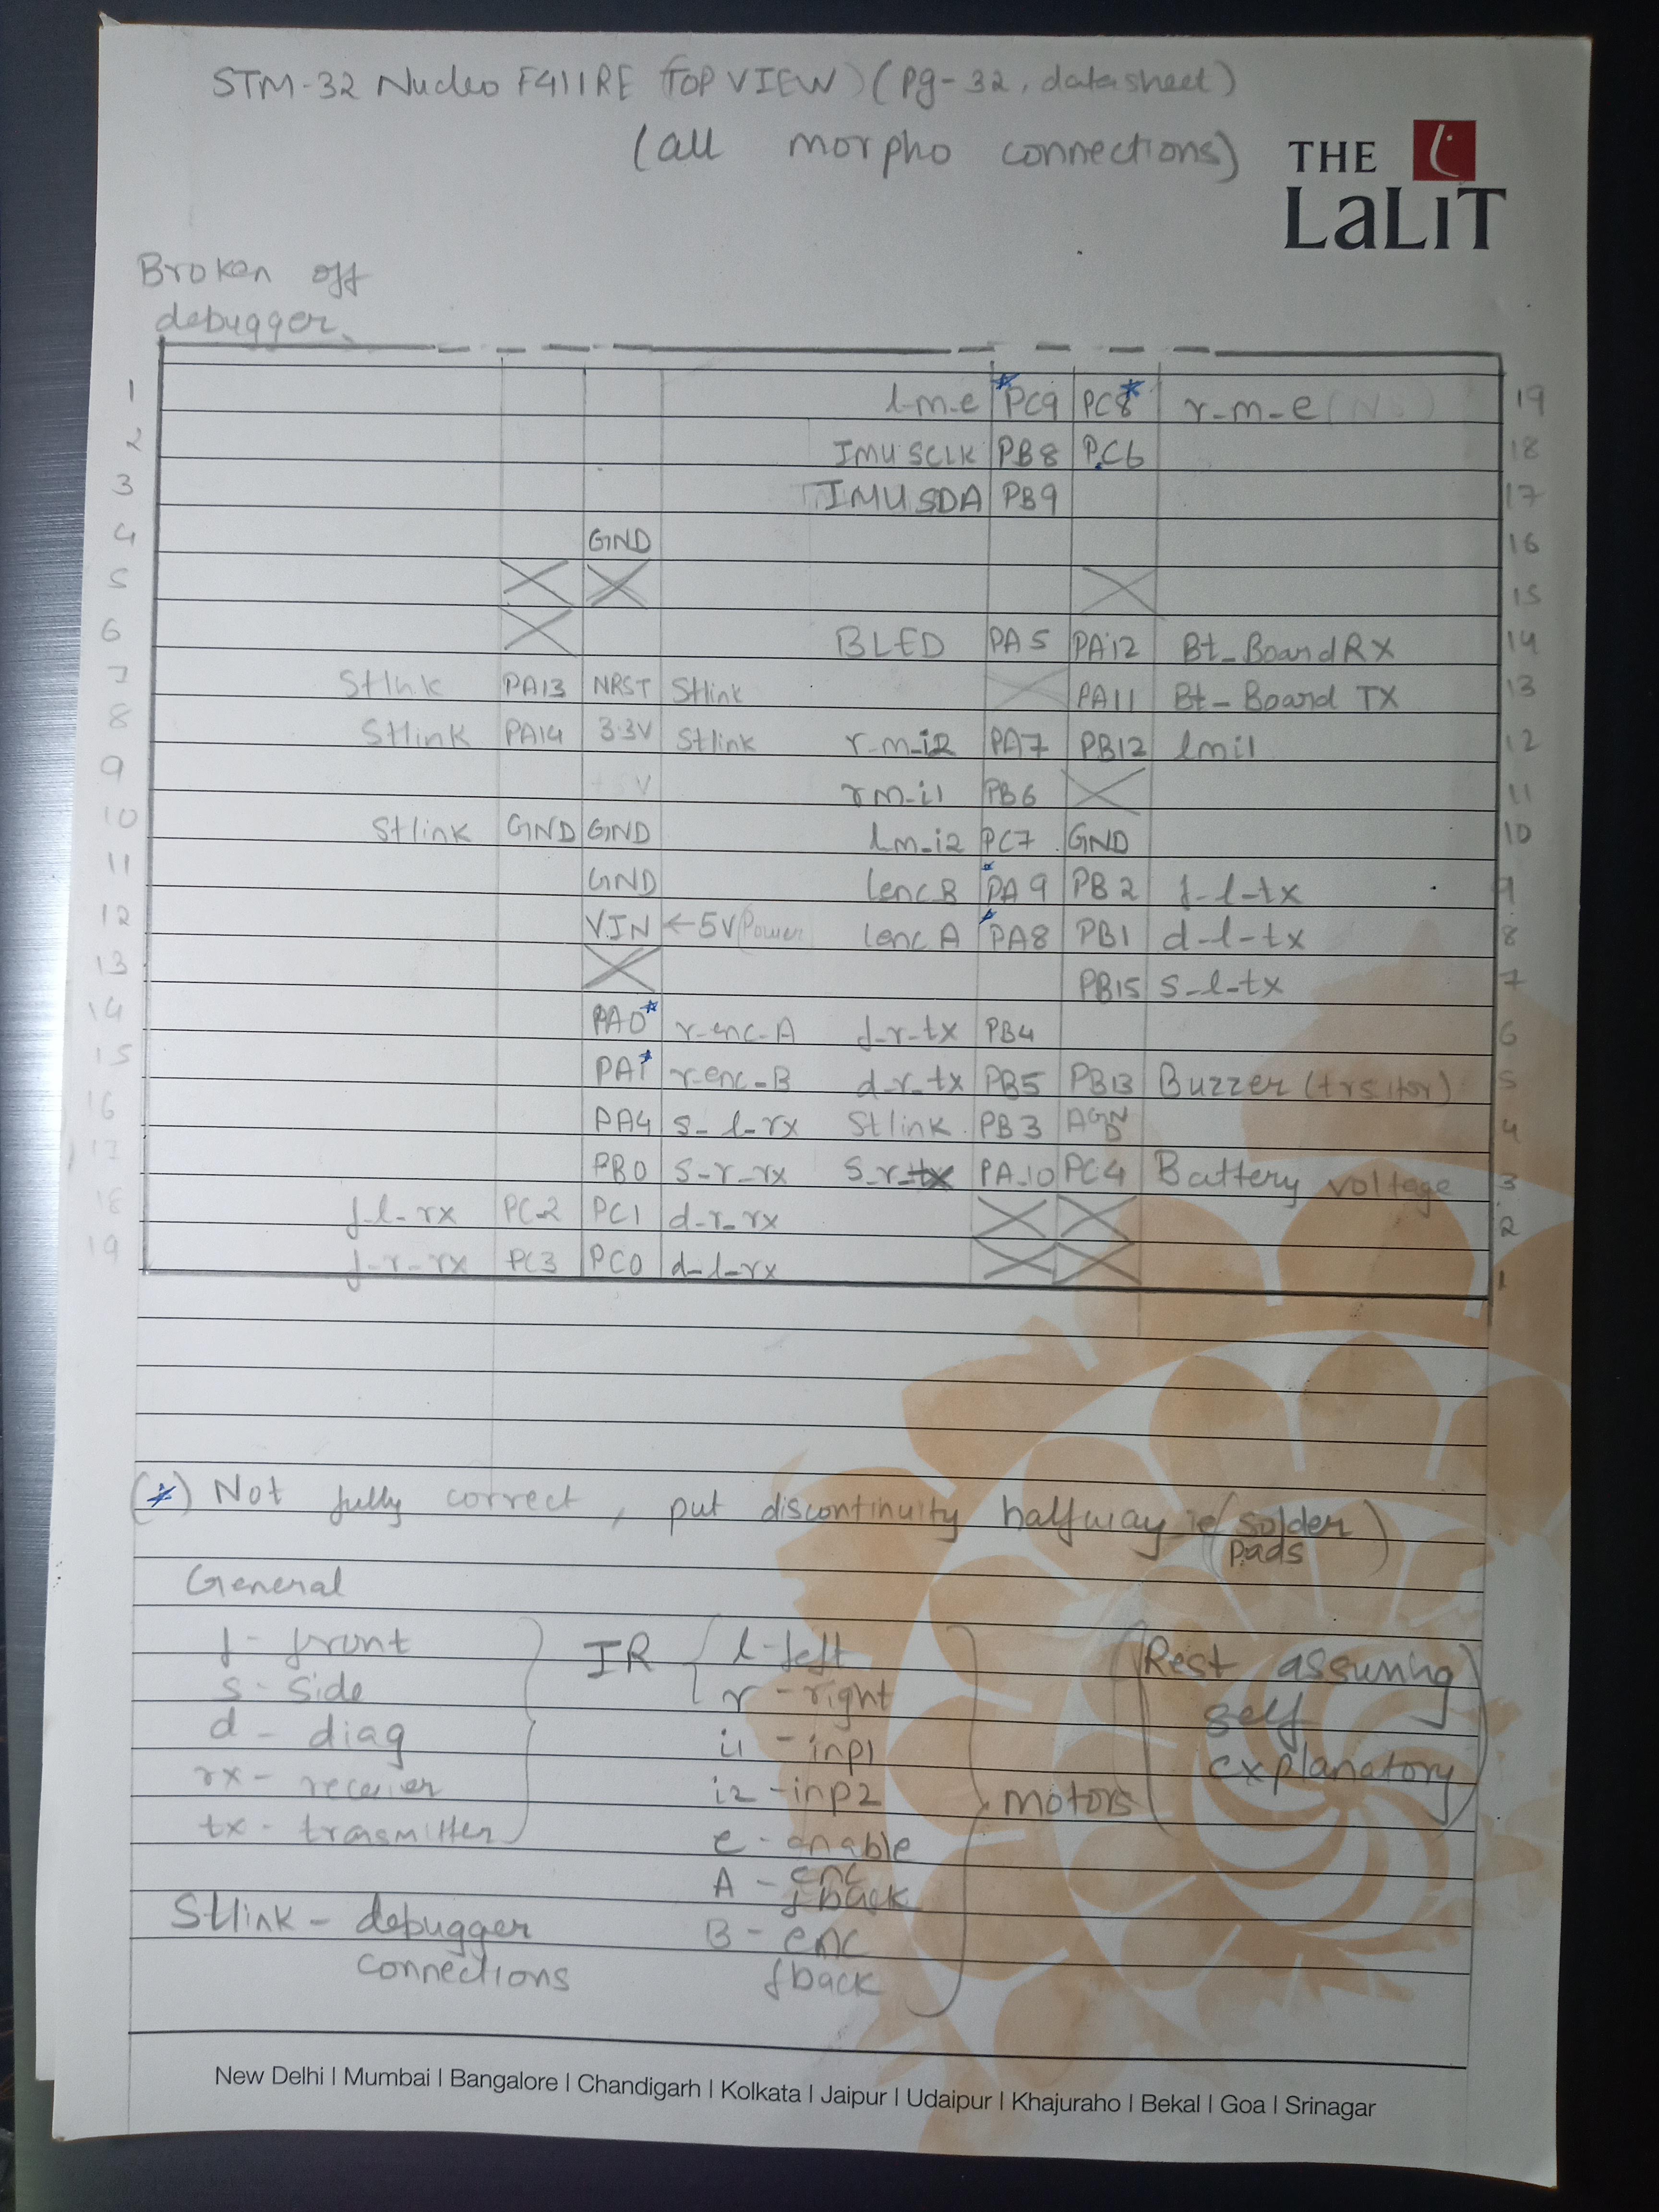 STM-32 Nucleo F411RE (TOP VIEW) (pg-32, datasheet)
(all morpho connections)
THE
LaLiT
Broken off
debugger
1 l-m-e *PC9 PC8* r-m-e 19
2 IMU SCLK PB8 PC6 18
3 IMU SDA PB9 17
4 GND 16
5 15
6 BLED PA5 PA12 Bt-Board RX 14
7 Stlink PA13 NRST Stlink PA11 Bt-Board TX 13
8 Stlink PA14 3.3V Stlink r-m-i2 PA7 PB12 lmi1 12
9 rm-i1 PB6 11
10 Stlink GND GND lm-i2 PC7 GND 10
11 GND lenc B *PA9 PB2 f-l-tx 9
12 VIN ←5V(Power lenc A *PA8 PB1 d-l-tx 8
13 PB15 s-l-tx 7
14 PA0* r-enc-A f-r-tx PB4 6
15 PA1* r-enc-B d-r-tx PB5 PB13 Buzzer (trsitor) 5
16 PA4 s-l-rx Stlink PB3 AGND 4
17 PB0 s-r-rx s-r-tx PA10 PC4 Battery voltage 3
18 f-l-rx PC2 PC1 d-r-rx 2
19 f-r-rx PC3 PC0 d-l-rx 1
(*) Not fully correct, put discontinuity halfway ie (solder
pads)
General
f- front IR l-left (Rest assuming
s- side r-right self
d- diag i1 -inp1 explanatory)
rx- receiver i2 -inp2 motors
tx- transmitter e-enable
A - enc
fback
Stlink - debugger B- enc
connections fback
New Delhi | Mumbai | Bangalore | Chandigarh | Kolkata | Jaipur | Udaipur | Khajuraho | Bekal | Goa | Srinagar